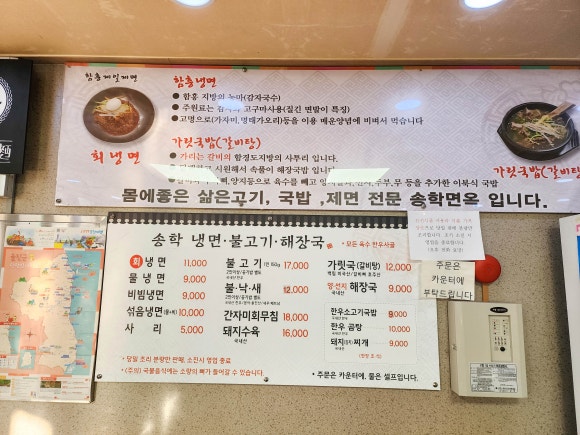 함흥제일제면
회냉면
함흥냉면
● 함흥 지방의 농마(감자국수)
고구마사용(질긴 면발이 특징)
● 고명으로(가자미,명태가오리)등을 이용 매운양념에 비벼서 먹습니다
가릿국밥(갈비탕)
● 가리는 갈비의 함경도지방의 사투리 입니다.
시원해서 속풀이 해장국밥 입니다
양지등으로 육수를 빼고
등을 추가한 이북식 국밥
가릿국밥(갈비탕)
몸에좋은 삶은고기, 국밥 ,제면 전문 송학면옥 입니다.
송학 냉면·불고기·해장국
*모든 육수 한우사골
회냉면 11,000
물냉면 9,000
비빔냉면 9,000
섞음냉면 10,000
사 리 5,000
불고기 17,000
불·낙·새 12,000
간자미회무침 18,000
돼지수육 16,000
국내산
가릿국(갈비탕) 12,000
양·선지 해장국 9,000
국내산
한우소고기국밥 9,000
한우 곰탕 10,000
돼지 찌개 9,000
국내산
● 당일 조리 분량만 판매, 소진시 영업 종료
● (주의) 국물음식에는 소량의 뼈가 들어갈 수 있습니다.
● 주문은 카운터에, 물은 셀프입니다.
주문은
카운터에
부탁드립니다